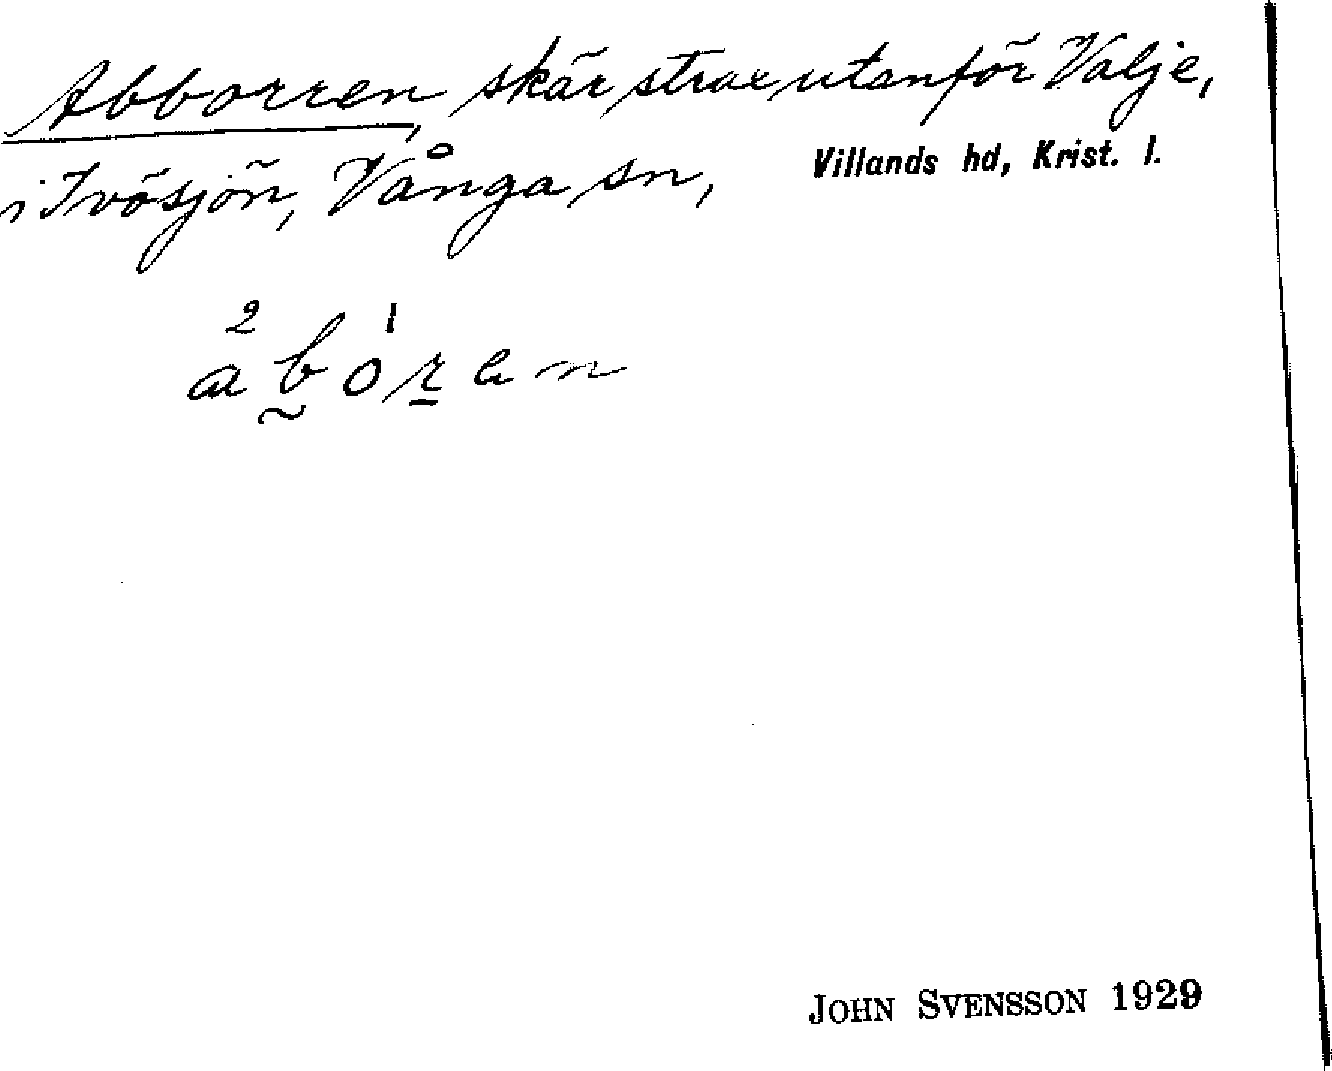 Abborren, skär strax utanför Valje,
i Ivösjön, Vånga sn, Villands hd, Krist. l.
2 1
aboren
JOHN SVENSSON 1929